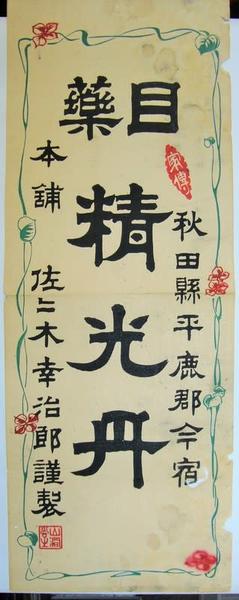 目藥
家傳
精光丹
秋田縣平鹿郡今宿
本舖
佐々木幸治郎謹製